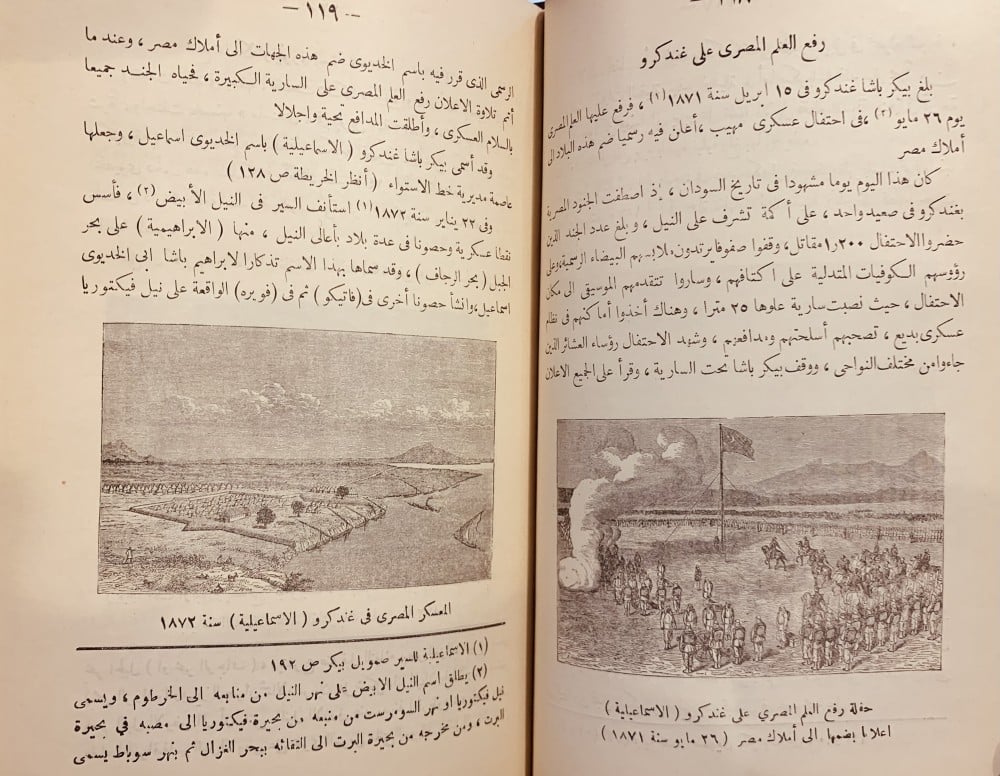 ١١٨
رفع العلم المصرى على غندكرو
بلغ بيكر باشا غندكرو فى ١٥ ابريل سنة ١٨٧١ (١) ، فرفع عليها العلم المصرى
يوم ٢٦ مايو (٢) ، فى احتفال عسكرى مهيب ، أعلن فيه رسميا ضم هذه البلاد الى
أملاك مصر
كان هذا اليوم يوما مشهودا فى تاريخ السودان ، إذ اصطفت الجنود المصرية
بغندكرو فى صعيد واحد ، على أكمة تشرف على النيل ، وبلغ عدد الجند الذين
حضروا الاحتفال ١٢٠٠ مقاتل ، وقفوا صفوفا يرتدون ملابسهم البيضاء الرسمية وعلى
رؤوسهم الكوفيات المتدلية على اكتافهم ، وساروا تتقدمهم الموسيقى الى مكان
الاحتفال ، حيث نصبت سارية علوها ٢٥ مترا ، وهناك أخذوا أماكنهم فى نظام
عسكرى بديع ، تصحبهم أسلحتهم ومدافعهم ، وشهد الاحتفال رؤساء العشائر الذين
جاءوا من مختلف النواحى ، ووقف بيكر باشا تحت السارية ، وقرأ على الجميع الاعلان
حفلة رفع العلم المصري على غندكرو ( الاسماعيلية )
اعلانا بضمها الى أملاك مصر ( ٢٦ مايو سنة ١٨٧١ )
— ١١٩ —
الرسمى الذى قرر فيه باسم الخديوى ضم هذه الجهات الى أملاك مصر ، وعند ما
أتم تلاوة الاعلان رفع العلم المصرى على السارية الكبيرة ، فحياه الجند جميعا
بالسلام العسكرى ، وأطلقت المدافع تحية واجلالا
وقد أسمى بيكر باشا غندكرو ( الاسماعيلية ) باسم الخديوى اسماعيل ، وجعلها
عاصمة مديرية خط الاستواء ( أنظر الخريطة ص ١٢٨ )
وفى ٢٢ يناير سنة ١٨٧٢ (١) استأنف السير فى النيل الأبيض (٢) ، فأسس
نقطا عسكرية وحصونا فى عدة بلاد بأعالى النيل ، منها ( الابراهيمية ) على بحر
الجبل ( بحر الرجاف ) ، وقد سماها بهذا الاسم تذكارا لابراهيم باشا ابى الخديوى
اسماعيل ، وانشأ حصونا أخرى فى ( فاتيكو ) ثم فى ( فويره ) الواقعة على نيل فيكتوريا
المعسكر المصرى فى غندكرو ( الاسماعيلية ) سنة ١٨٧٢
(١) الاسماعيلية للسير صمويل بيكر ص ١٩٢
(٢) يطلق اسم النيل الابيض على نهر النيل من منابعه الى الخرطوم ، ويسمى
نيل فيكتوريا او نهر السومرست من منبعه من بحيرة فيكتوريا الى مصبه في بحيرة
البرت ، ومن مخرجه من بحيرة البرت الى التقائه ببحر الغزال ثم بنهر سوباط يسمى